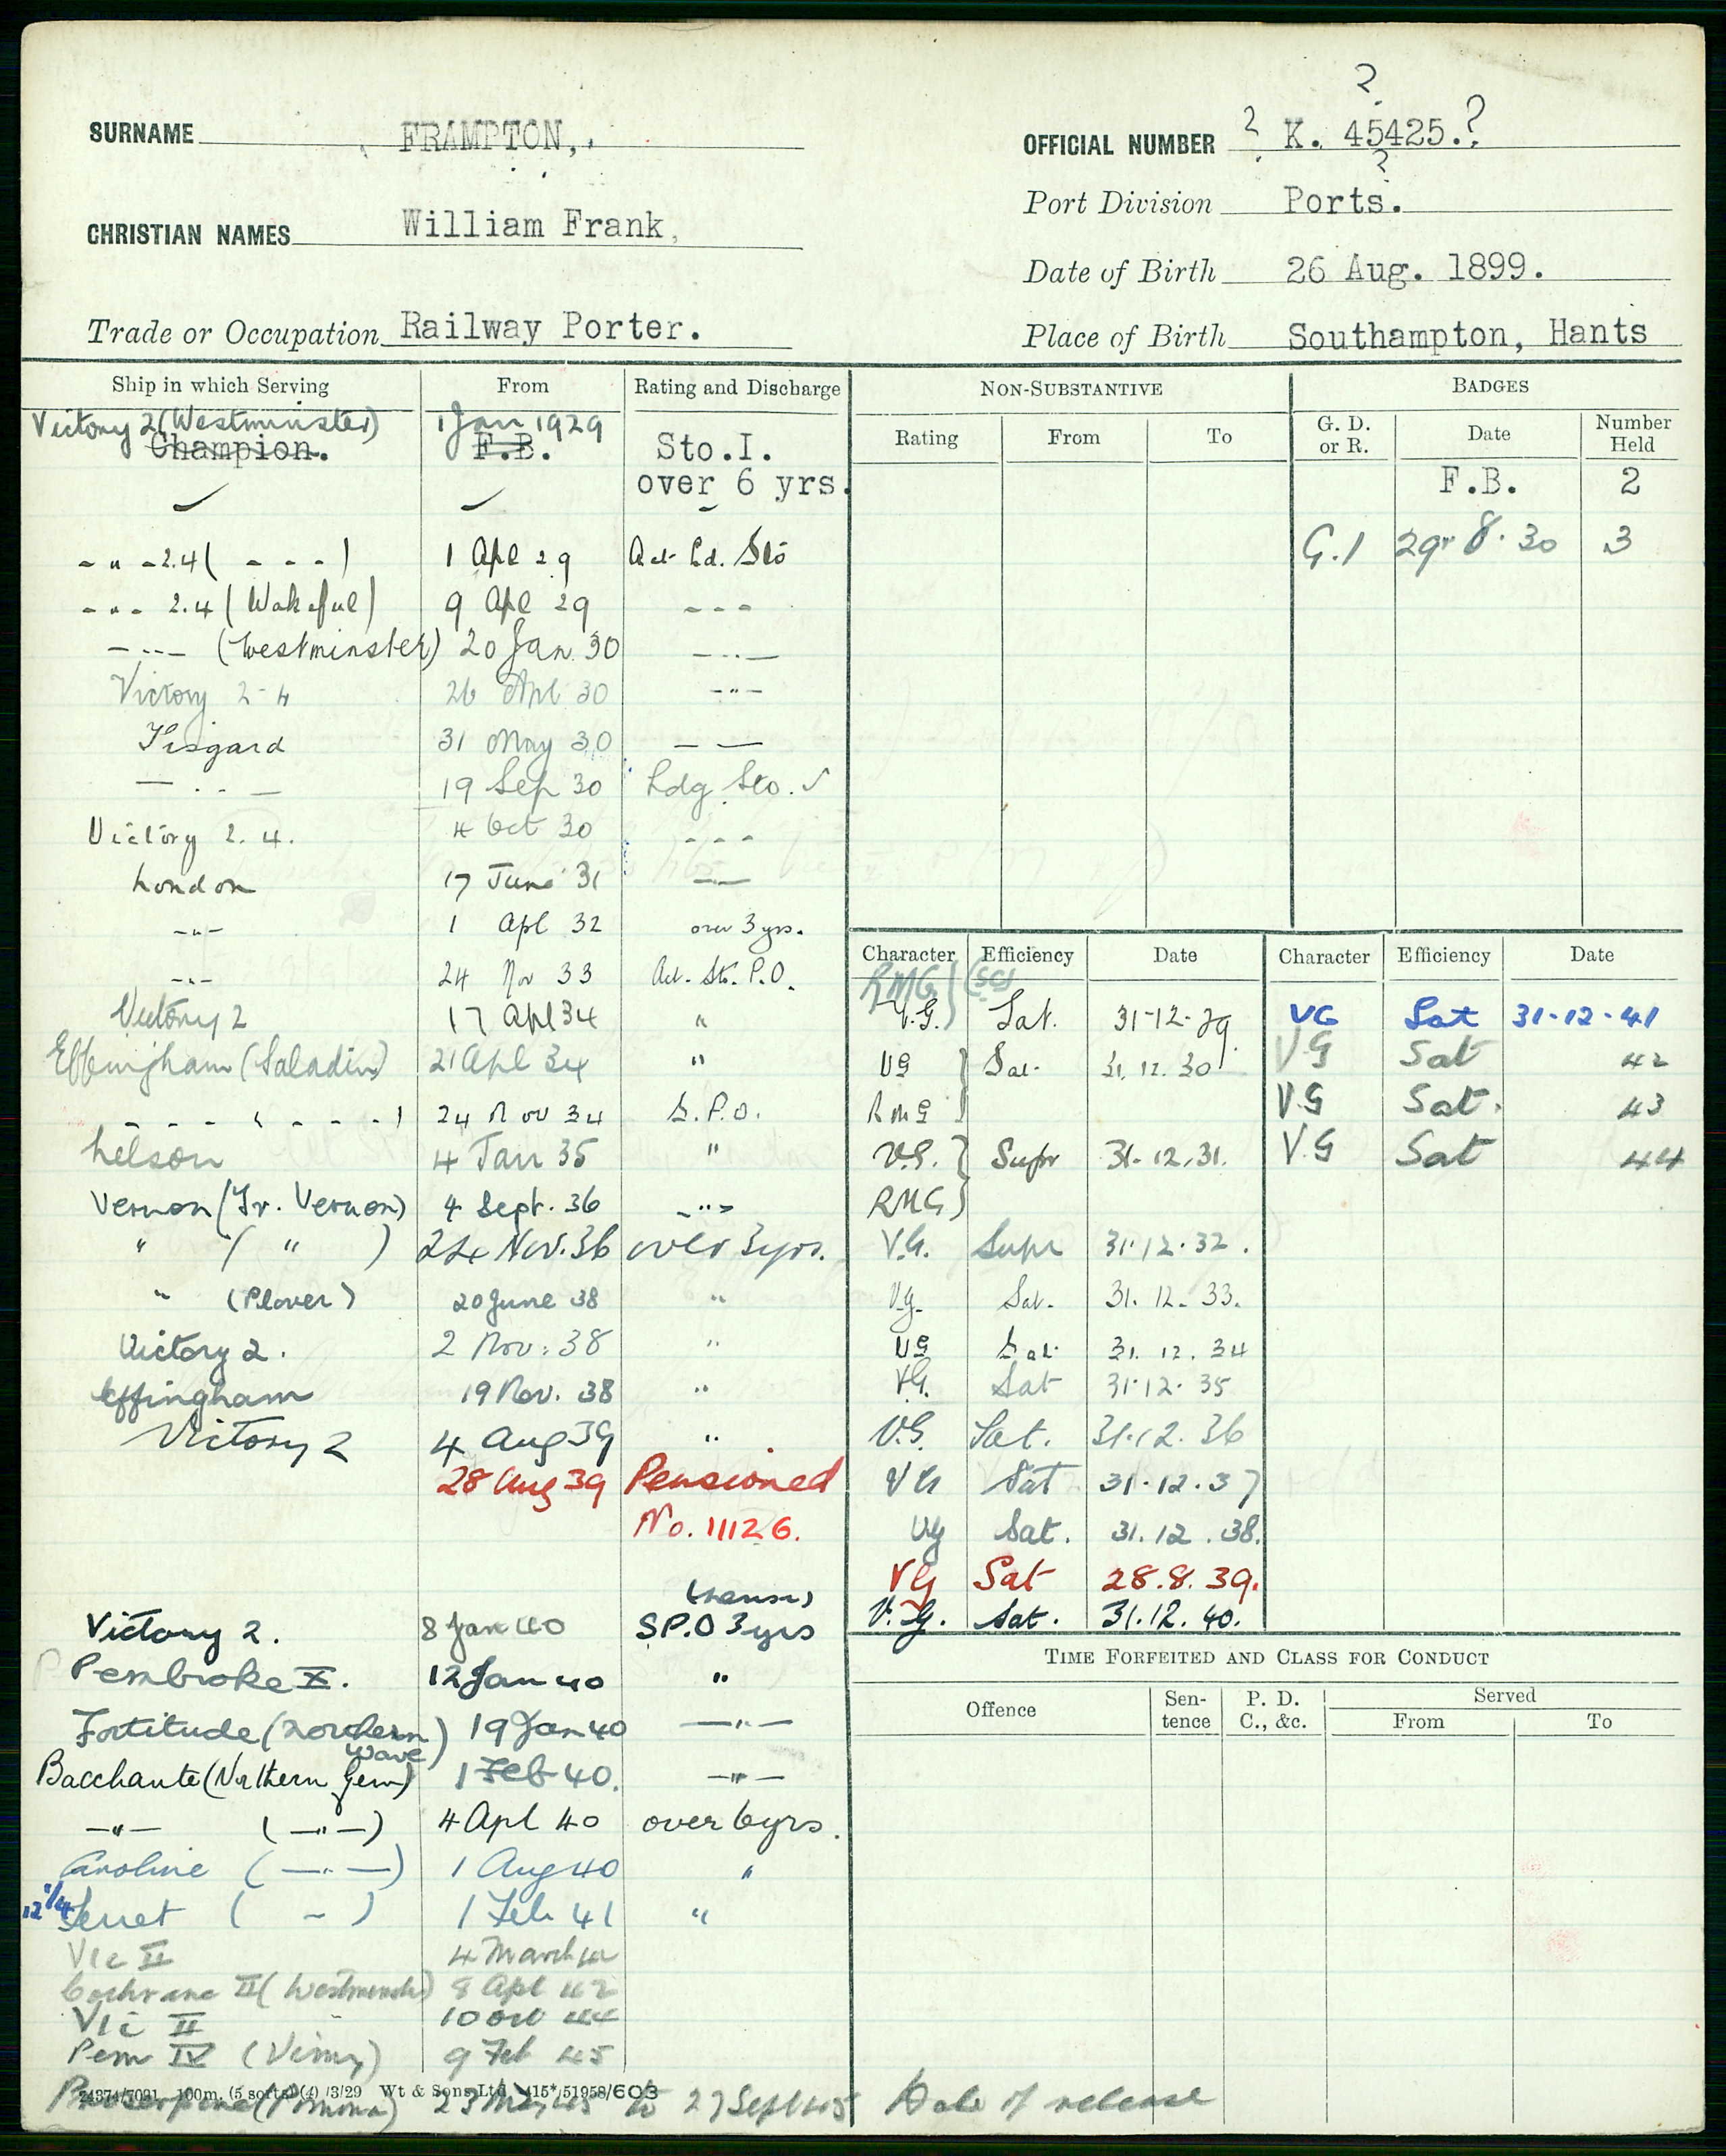 ?
SURNAME FRAMPTON, OFFICIAL NUMBER ? K. 45425.?
?
CHRISTIAN NAMES William Frank, Port Division Ports.
Date of Birth 26 Aug. 1899.
Trade or Occupation Railway Porter. Place of Birth Southampton, Hants
Ship in which Serving From Rating and Discharge
Victory 2 (Westminster) 1 Jan 1929
Champion. F.B. Sto.I.
over 6 yrs.
- " - 2.4 ( - - - ) 1 Apl 29 Act Ld. Sto
- " - 2.4 (Wakeful) 9 Apl 29 - - -
- " - (Westminster) 20 Jan 30 - " -
Victory 2-4 26 Apl 30 - " -
Fisgard 31 May 30 - -
- " - 19 Sep 30 Ldg Sto. ✓
Victory 2.4. 4 Oct 30 - - -
London 17 June 31 - -
- " - 1 Apl 32 over 3 yrs.
- " - 24 Nov 33 Act. Sto. P.O.
Victory 2 17 Apl 34 "
Effingham (Saladin) 21 Apl 34 "
- - - ( - - - ) 24 Nov 34 S.P.O.
Nelson 4 Jan 35 "
Vernon (Tr. Vernon) 4 Sept. 36 - " -
" ( " ) 24 Nov. 36 over 3 yrs.
" (Plover) 20 June 38 "
Victory 2. 2 Nov. 38 "
Effingham 19 Nov. 38 "
Victory 2 4 Aug 39 "
28 Aug 39 Pensioned
No. 11126.
(Pens)
Victory 2. 8 Jan 40 S.P.O 3 yrs
Pembroke X. 12 Jan 40 "
Fortitude (Northern Wave) 19 Jan 40 - " -
Bacchante (Northern Gem) 1 Feb 40. - " -
- " - ( - " - ) 4 Apl 40 over 6 yrs.
Caroline ( - " - ) 1 Aug 40 "
Ferret ( - ) 1 Feb 41 "
Vic II 4 March 42
Cochrane II (Westminster) 8 Apl 42
Vic II 10 Oct 44
Pem IV (Vimy) 9 Feb 45
24374/7091 100m. (5 sorts) (4) /3/29 Wt & Sons Ltd 415*/51958/603
Proserpine (Pomona) 23 May 45 to 27 Sept 45 Date of release
NON-SUBSTANTIVE
Rating From To
BADGES
G. D. or R. Date Number Held
F.B. 2
G.1 29 8.30 3
Character Efficiency Date
RMG (SG)
V.G. Sat. 31-12-29
VG Sat. 31.12.30
RMG
V.G. Supr 31.12.31.
RMG
V.G. Supr 31.12.32.
V.G. Sat. 31.12.33.
VG Sat 31.12.34
V.G. Sat 31.12.35
V.G. Sat. 31.12.36
VG Sat 31.12.37
VG Sat. 31.12.38.
VG Sat 28.8.39.
V.G. Sat. 31.12.40.
Character Efficiency Date
VG Sat 31-12-41
VG Sat 42
V.G Sat. 43
V.G Sat 44
TIME FORFEITED AND CLASS FOR CONDUCT
Offence Sentence P. D. C., &c. Served
From To